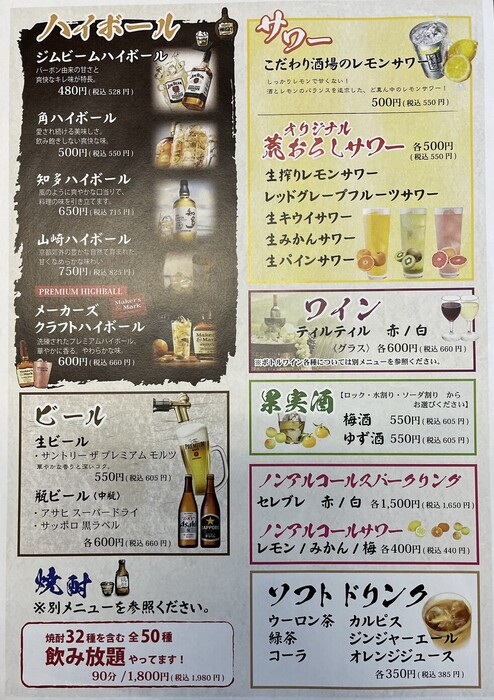 ハイボール
ジムビームハイボール
バーボン由来の甘さと
爽快なキレ味が特長。
480円(税込528円)
角ハイボール
愛され続ける美味しさ。
飲み飽きしない爽快な味。
500円(税込550円)
知多ハイボール
風のように爽やかな口当りで、
料理の味を引き立てます。
650円(税込715円)
山崎ハイボール
京都郊外の豊かな自然で育まれた
甘くなめらかな味わい
750円(税込825円)
PREMIUM HIGHBALL
メーカーズ
クラフトハイボール
Maker's Mark
洗練されたプレミアムハイボール。
華やかに香る、やわらかな味。
600円(税込660円)
ビール
生ビール
・サントリー ザ プレミアム モルツ
華やかな香りと深いコク。
550円(税込605円)
瓶ビール(中瓶)
・アサヒ スーパードライ
・サッポロ 黒ラベル
各600円(税込660円)
Asahi
SAPPORO
焼酎
※別メニューを参照ください。
焼酎32種を含む 全50種
飲み放題 やってます！
90分/1,800円(税込1,980円)
サワー
こだわり酒場のレモンサワー
しっかりレモンで甘くない！
酒とレモンのバランスを追求した、ど真ん中のレモンサワー！
500円(税込550円)
オリジナル
荒おろしサワー 各500円
(税込550円)
生搾りレモンサワー
レッドグレープフルーツサワー
生キウイサワー
生みかんサワー
生パインサワー
ワイン
ティルティル 赤/白
(グラス) 各600円(税込660円)
※ボトルワイン各種については別メニューを参照ください。
果実酒
【ロック・水割り・ソーダ割り から
お選びください】
梅酒 550円(税込605)
ゆず酒 550円(税込605)
ノンアルコールスパークリング
セレブレ 赤/白 各1,500円(税込1,650円)
ノンアルコールサワー
レモン/みかん/梅 各400円(税込440円)
ソフトドリンク
ウーロン茶 カルピス
緑茶 ジンジャーエール
コーラ オレンジジュース
各350円(税込385円)